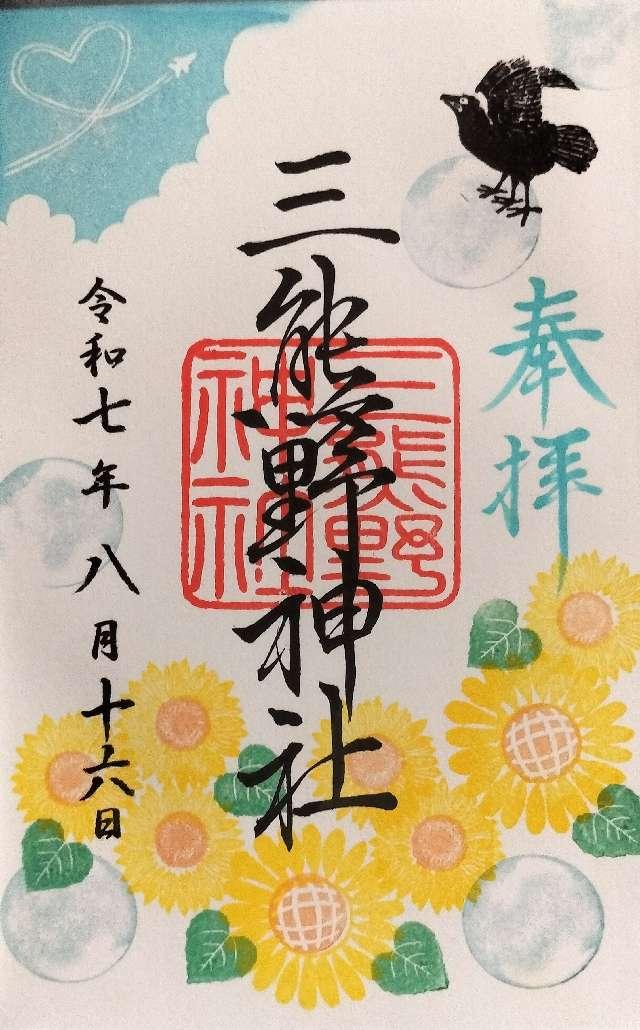 奉拝
三熊野神社
三熊野
神社
令和七年八月十六日